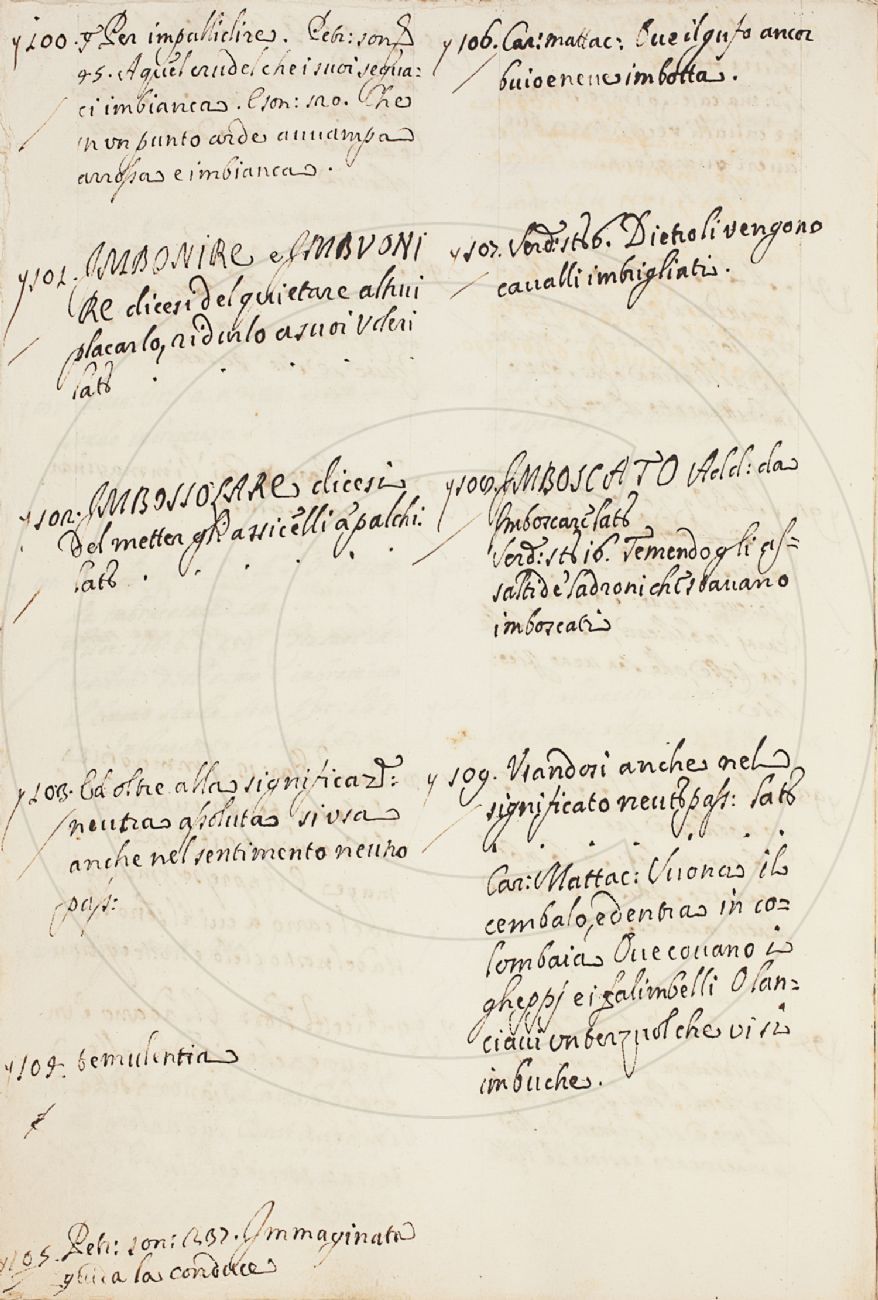 y 100. ¶ Per impallidire. Petr: son:
45. A quel crudel che i suoi segua:
ci imbianca. E son: 180. Che
in un punto arde auuampa
arrossa e imbianca.
y 101. IMBONIRE e IMBVONI
RE dicesi del quietare altrui
placarlo, ridurlo a suoi voleri
lat:
y 102. IMBOSSOLARE dicesi
del metter gli assicelli a palchi:
lat:
y 103. Ed oltre alla significaz:
neutra assoluta si usa
anche nel sentimento neutro
pass:
y 104. temulentia
y 105. Petr: son: 237. Immaginata
guida la conduce
y 106. Car: mattac: Oue il gufo ancor
buio e neue imbotta.
y 107. Verd: st: 6. Dietro li vengono
caualli imbrigliati.
y 108. IMBOSCATO Add: da
Imboscare lat:
Verd: st: 16. Temendo gli as=
salti de ladroni che stauano
imboscati
y 109. Vsandosi anche nel
significato neut: pass: lat:
Car: Mattac: Vuona il
cembalo, ed entra in co=
lombaia Oue couano i
gheppj e i falimbelli O lan=
ciaui un berzuol che vi si
imbuche.